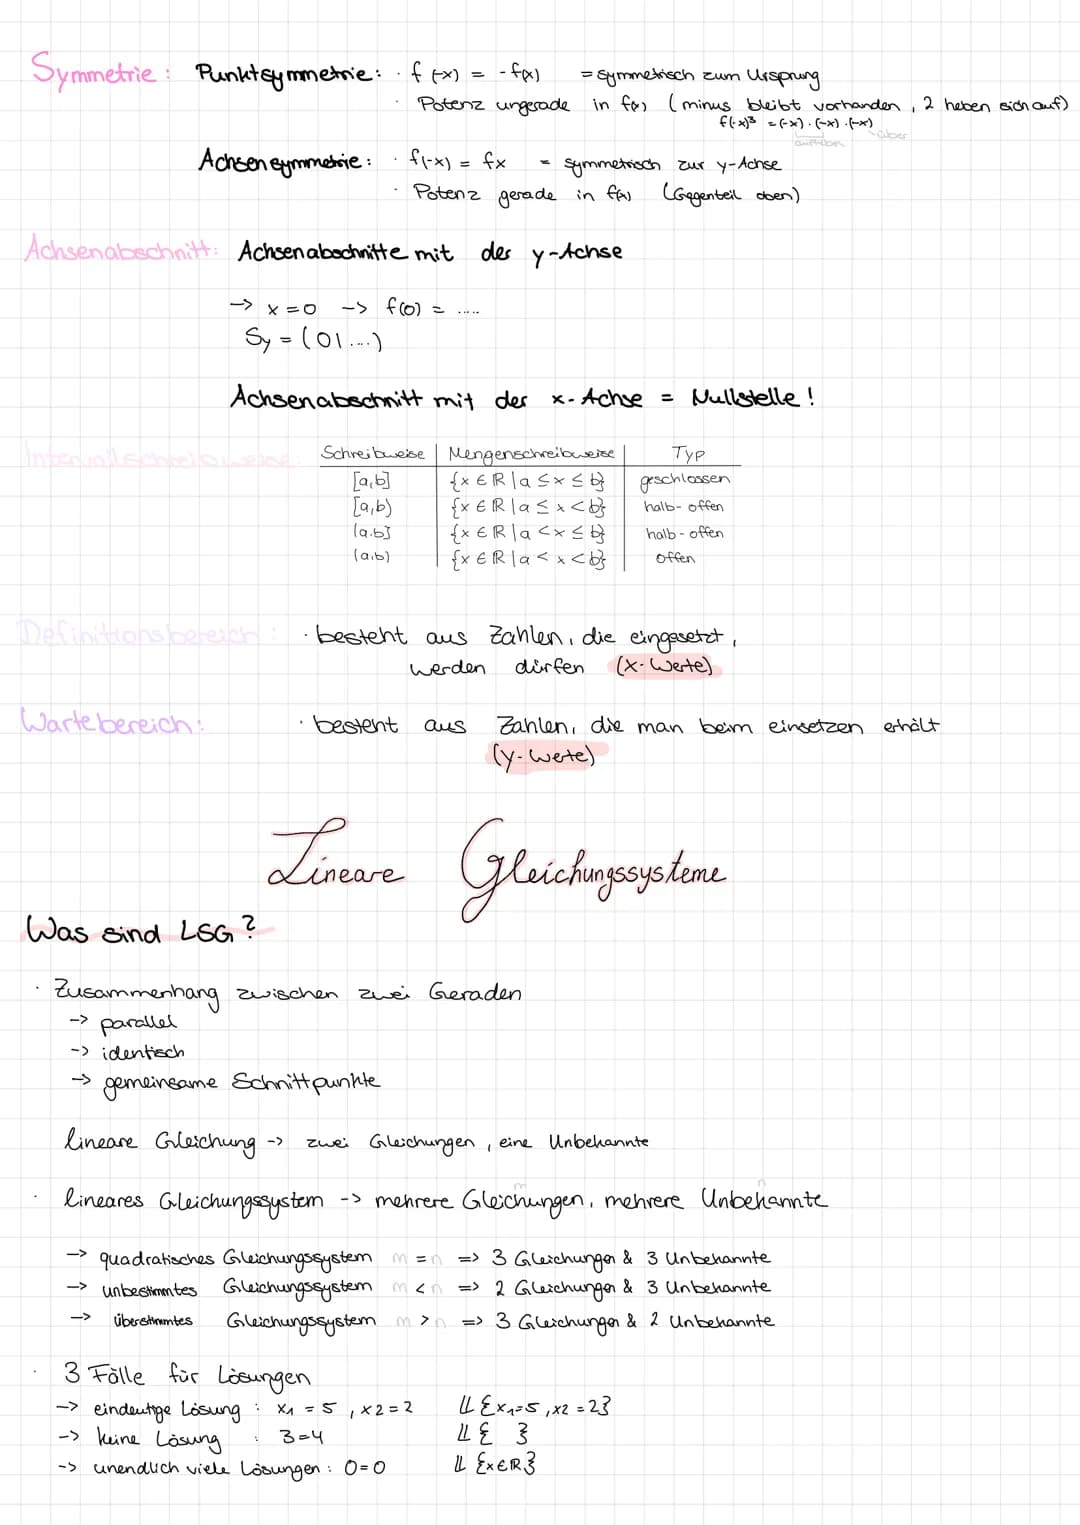 Symmetrie : Punktsymmetrie: · f(-x) = -f(x) = symmetrisch zum Ursprung
· Potenz ungerade in f(x) (minus bleibt vorhanden, 2 heben sich auf)
f(-x)³ = (-x)·(-x)·(-x)
aufheben über
Achsensymmetrie: · f(-x) = fx = symmetrisch zur y-Achse
· Potenz gerade in f(x) (Gegenteil oben)
Achsenabschnitt: Achsenabschnitte mit der y-Achse
-> x=0 -> f(0) = .....
Sy = (0|....)
Achsenabschnitt mit der x-Achse = Nullstelle!
Intervallschreibweise: Schreibweise | Mengenschreibweise | Typ
[a,b] | {x ∈ ℝ | a ≤ x ≤ b} | geschlossen
[a,b) | {x ∈ ℝ | a ≤ x < b} | halb-offen
(a,b] | {x ∈ ℝ | a < x ≤ b} | halb-offen
(a,b) | {x ∈ ℝ | a < x < b} | offen
Definitionsbereich : · besteht aus Zahlen, die eingesetzt,
werden dürfen (x-Werte)
Wartebereich: · besteht aus Zahlen, die man beim einsetzen erhält
(y-Werte)
Lineare Gleichungssysteme
Was sind LSG?
· Zusammenhang zwischen zwei Geraden
-> parallel
-> identisch
-> gemeinsame Schnittpunkte
lineare Gleichung -> zwei Gleichungen, eine Unbekannte
m n
· lineares Gleichungssystem -> mehrere Gleichungen, mehrere Unbekannte
-> quadratisches Gleichungssystem m = n => 3 Gleichungen & 3 Unbekannte
-> unbestimmtes Gleichungssystem m < n => 2 Gleichungen & 3 Unbekannte
-> überstimmtes Gleichungssystem m > n => 3 Gleichungen & 2 Unbekannte
· 3 Fälle für Lösungen
-> eindeutige Lösung : x1 = 5 , x2=2 𝕃 {x1=5, x2=2}
-> keine Lösung : 3=4 𝕃 { }
-> unendlich viele Lösungen : 0=0 𝕃 {x∈ℝ}